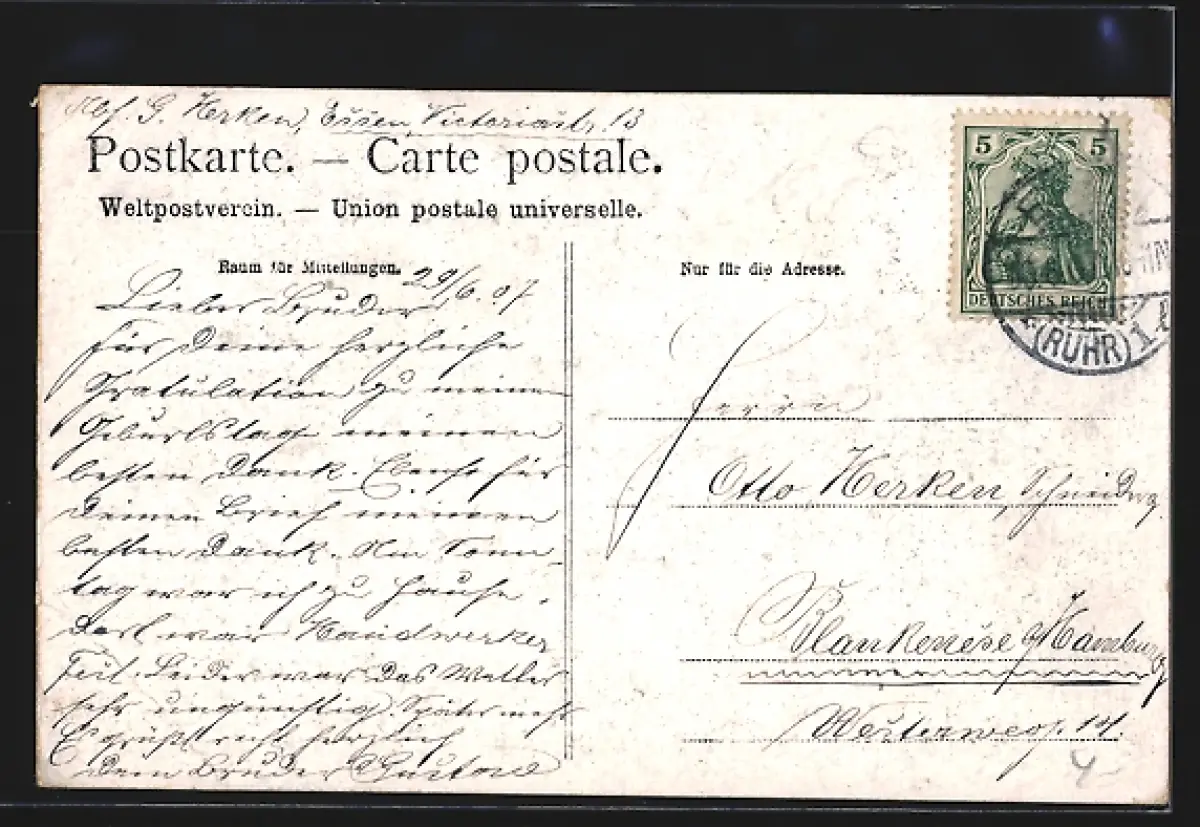 Abs. G. Herken, Essen, Victoriastr. 13
Postkarte. — Carte postale.
Weltpostverein. — Union postale universelle.
Raum für Mitteilungen.
29/6.07
Lieber Bruder
Für Deine herzliche
Gratulation zu meinem
Geburtstag meinen
besten Dank. Ebenso für
Deinen Brief meinen
besten Dank. Am Sonn-
tag war ich zu Hause.
Dort war Handwerker
Fest. Leider war das Wetter
sehr ungünstig. Später mehr
Es grüßt recht herzlich
Dein Bruder Gustav
Nur für die Adresse.
5 5
DEUTSCHES REICH
(RUHR) 1
Herrn
Otto Herken,
Blankenese b/Hamburg
Westerweg 14.
4